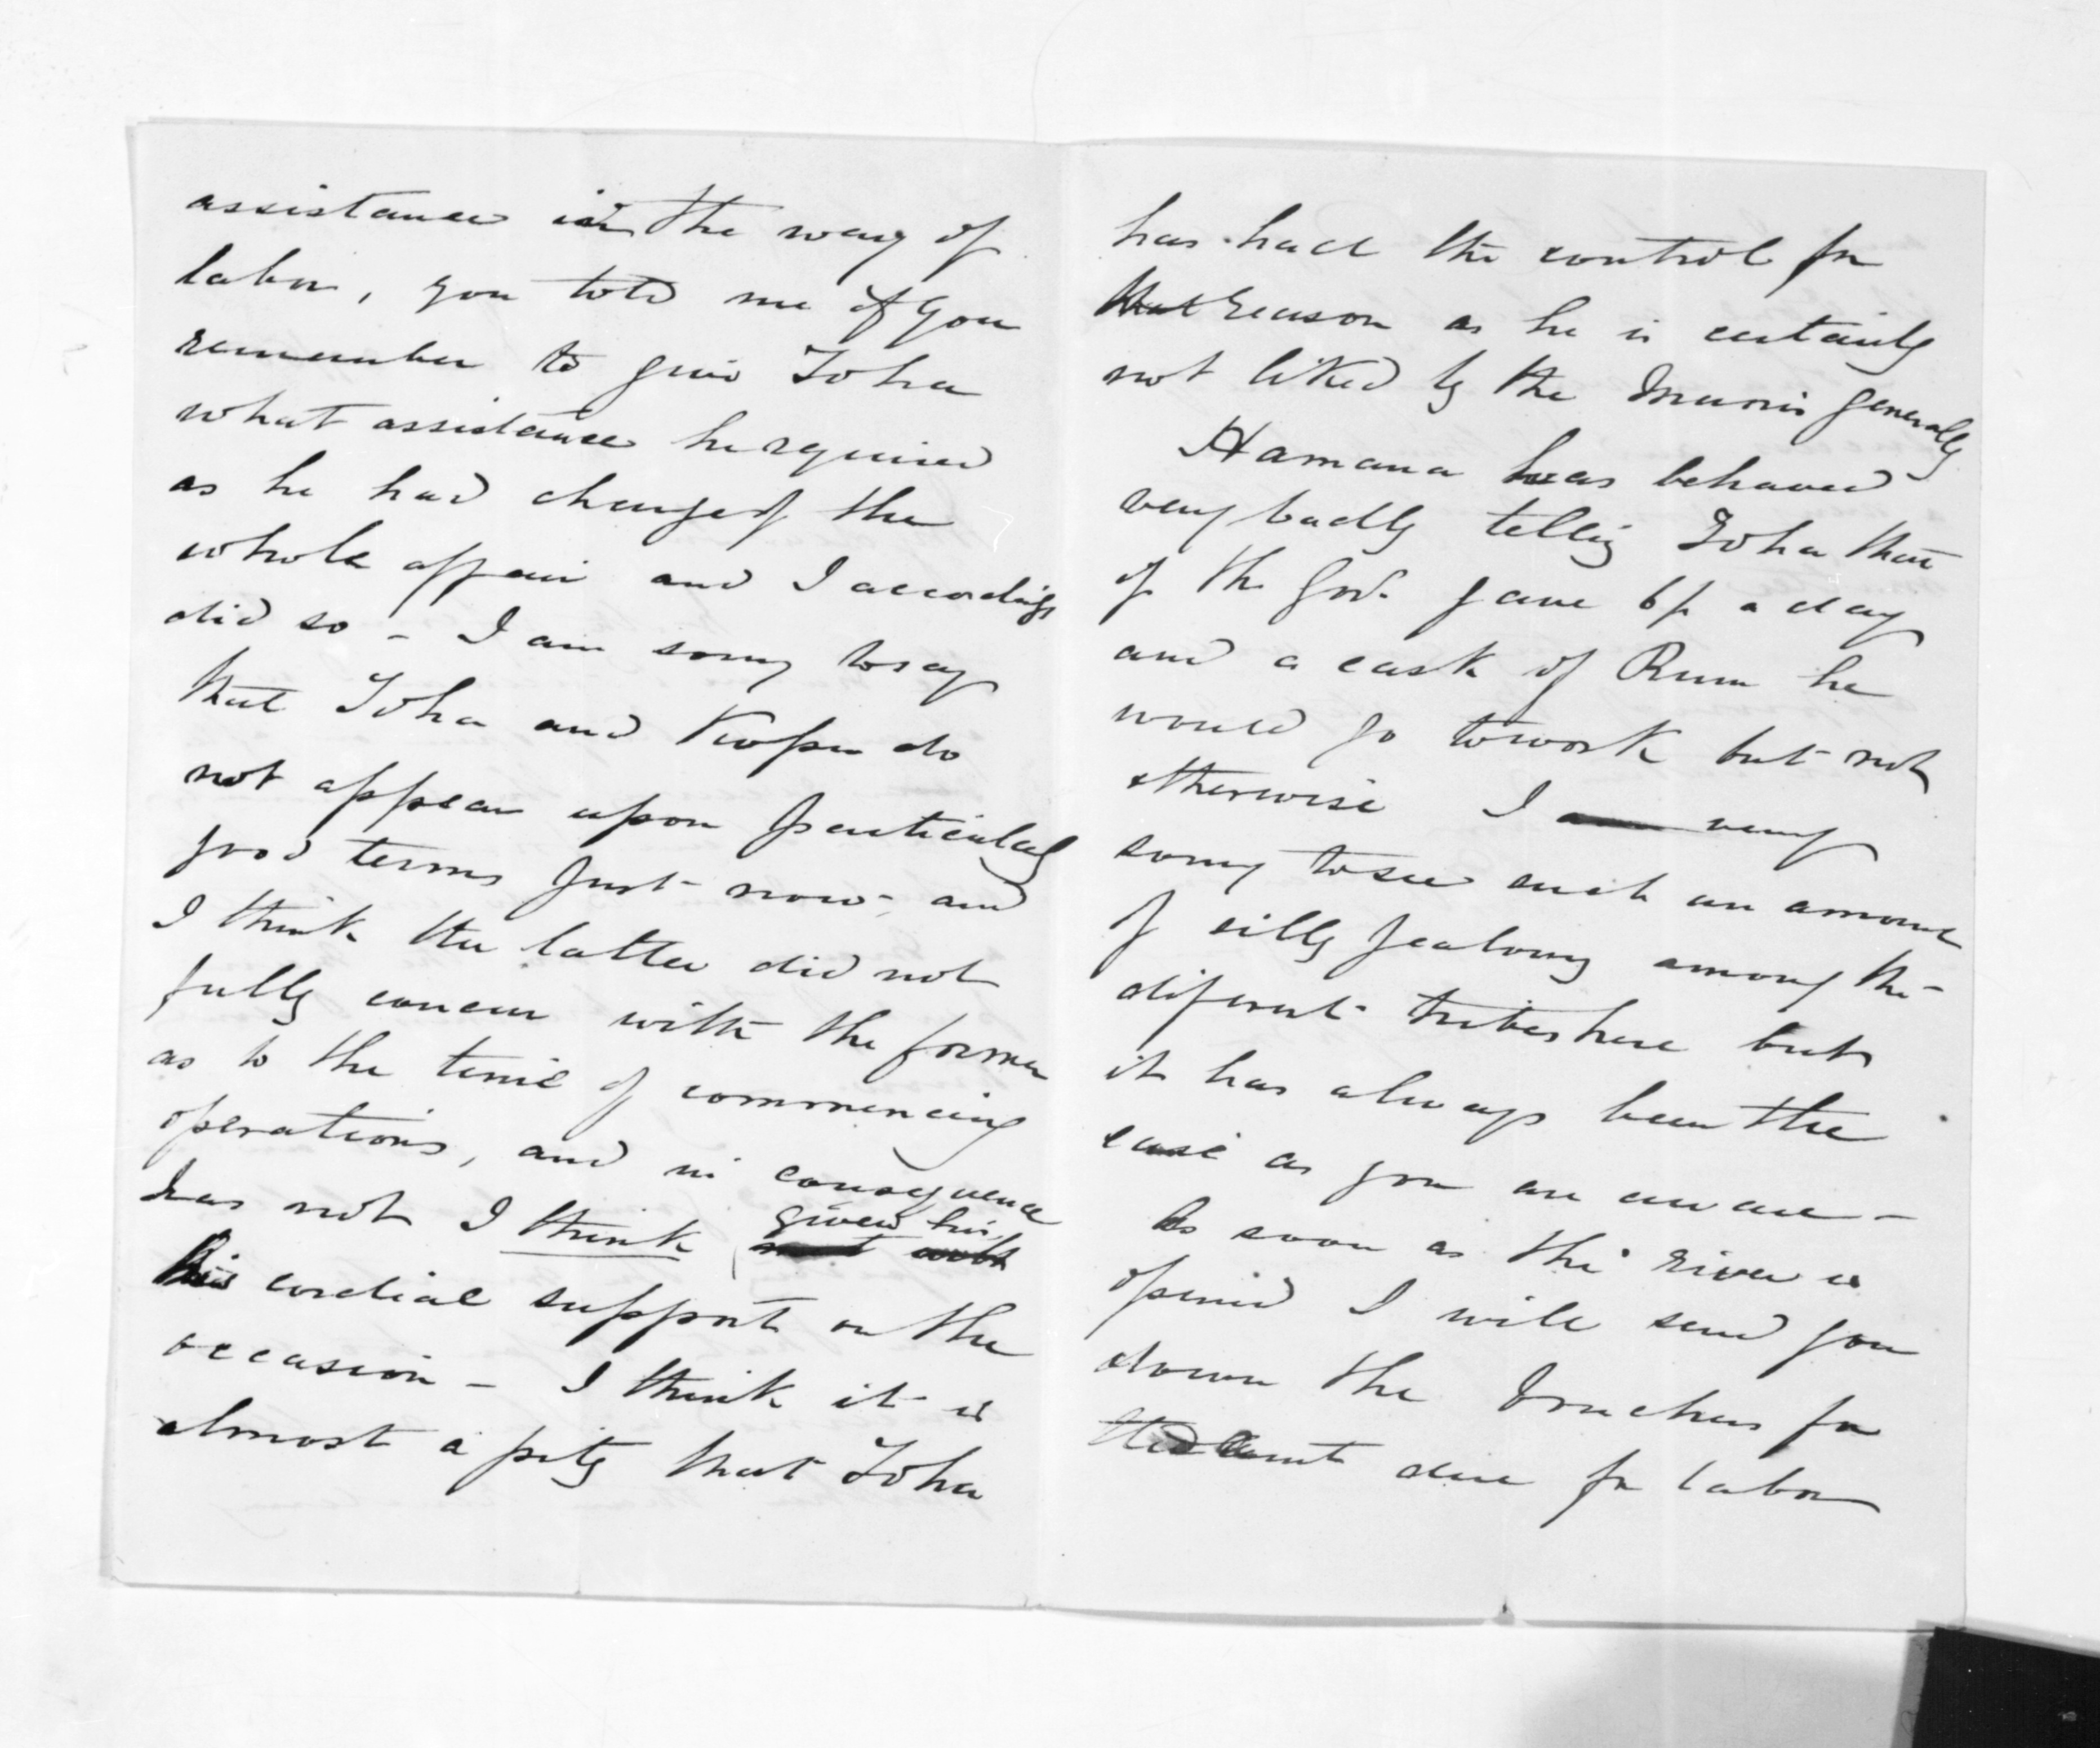 assistance in the way of
labor, you told me if you
remember to give Toha
what assistance he required
as he had charge of the
whole affair and I accordingly
did so - I am sorry to say
that Toha and Kopu do
not appear upon particularly
good terms just now, and
I think the latter did not
fully concur with the former
as to the time of commencing
operations, and in consequence
has not I think given him
his cordial support on the
occasion - I think it is
almost a pity that Toha
has had the control for
that reason as he is certainly
not liked by the Maoris generally
Hamana has behaved
very badly telling Toha that
if the Govt. gave 6/- a day
and a cask of Rum he
would go to work but not
otherwise I am very
sorry to see such an amount
of silly jealousy among the
diferent tribes here but
it has always been the
case as you are aware -
As soon as the river is
opened I will send you
down the Vouchers for
the amt due for labor